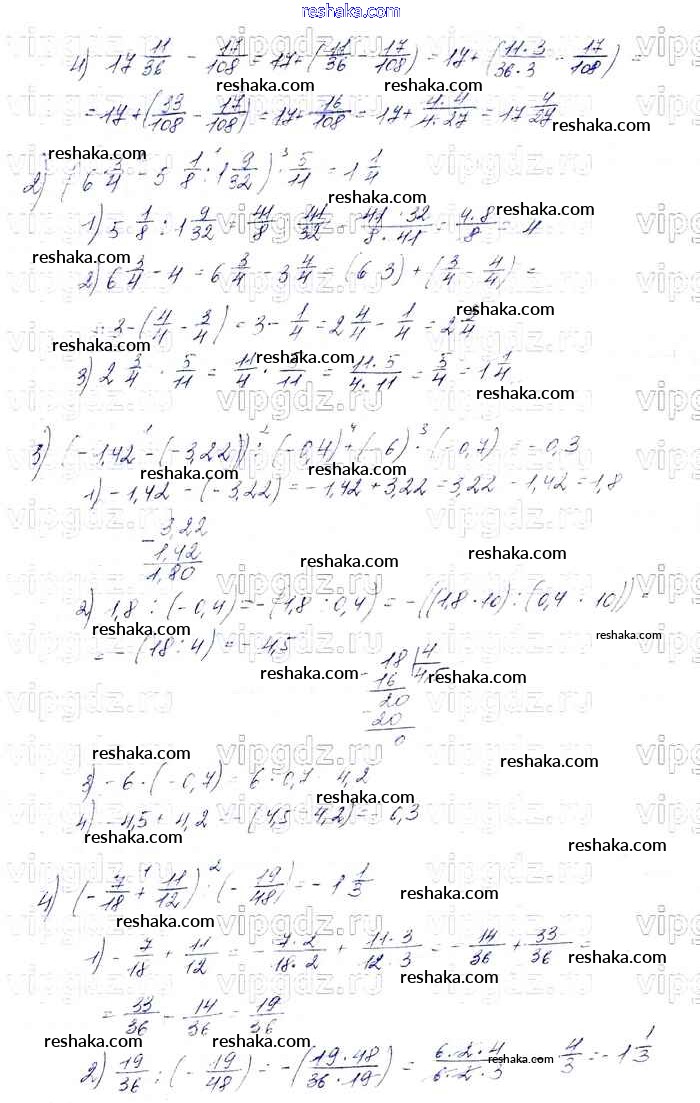 reshaka.com
4) 17 11/36 - 17/108 = 17 + (11/36 - 17/108) = 17 + (11·3/36·3 - 17/108) =
reshaka.com reshaka.com
= 17 + (33/108 - 17/108) = 17 + 16/108 = 17 + 4·4/4·27 = 17 4/27
reshaka.com reshaka.com
2) (6 3/4 - 5 1/8 : 1 9/32) · 5/11 = 1 1/4
reshaka.com
1) 5 1/8 : 1 9/32 = 41/8 : 41/32 = 41·32/8·41 = 4·8/8 = 4
reshaka.com reshaka.com
2) 6 3/4 - 4 = 6 3/4 - 3 4/4 = (6 3) + (3/4 - 4/4) =
reshaka.com
= 3 - (4/4 - 3/4) = 3 - 1/4 = 2 4/4 - 1/4 = 2 3/4
reshaka.com reshaka.com
3) 2 3/4 · 5/11 = 11/4 · 5/11 = 11·5/4·11 = 5/4 = 1 1/4
reshaka.com
3) (-1,42 - (-3,22)) : (-0,4) + (-6) · (-0,7) = -0,3
reshaka.com reshaka.com
1) -1,42 - (-3,22) = -1,42 + 3,22 = 3,22 - 1,42 = 1,8
reshaka.com
- 3,22
1,42
1,80
reshaka.com
2) 1,8 : (-0,4) = -(1,8 : 0,4) = -((1,8 · 10) : (0,4 · 10)) =
reshaka.com reshaka.com
= -(18 : 4) = -4,5
18 4
16 4,5
20
20
0
reshaka.com reshaka.com
reshaka.com reshaka.com
3) -6 · (-0,7) = 6 · 0,7 4,2
reshaka.com
4) -4,5 + 4,2 = -(4,5 - 4,2) = - 6,3
reshaka.com reshaka.com
4) (-7/18 + 11/12) : (-19/48) = -1 1/3
reshaka.com reshaka.com
1) -7/18 + 11/12 = -7·2/18·2 + 11·3/12·3 = -14/36 + 33/36 =
reshaka.com reshaka.com
= 33/36 - 14/36 = 19/36
reshaka.com reshaka.com
2) 19/36 : (-19/48) = -(19·48/36·19) = 6·2·4/6·2·3 4/3 = -1 1/3
reshaka.com reshaka.com